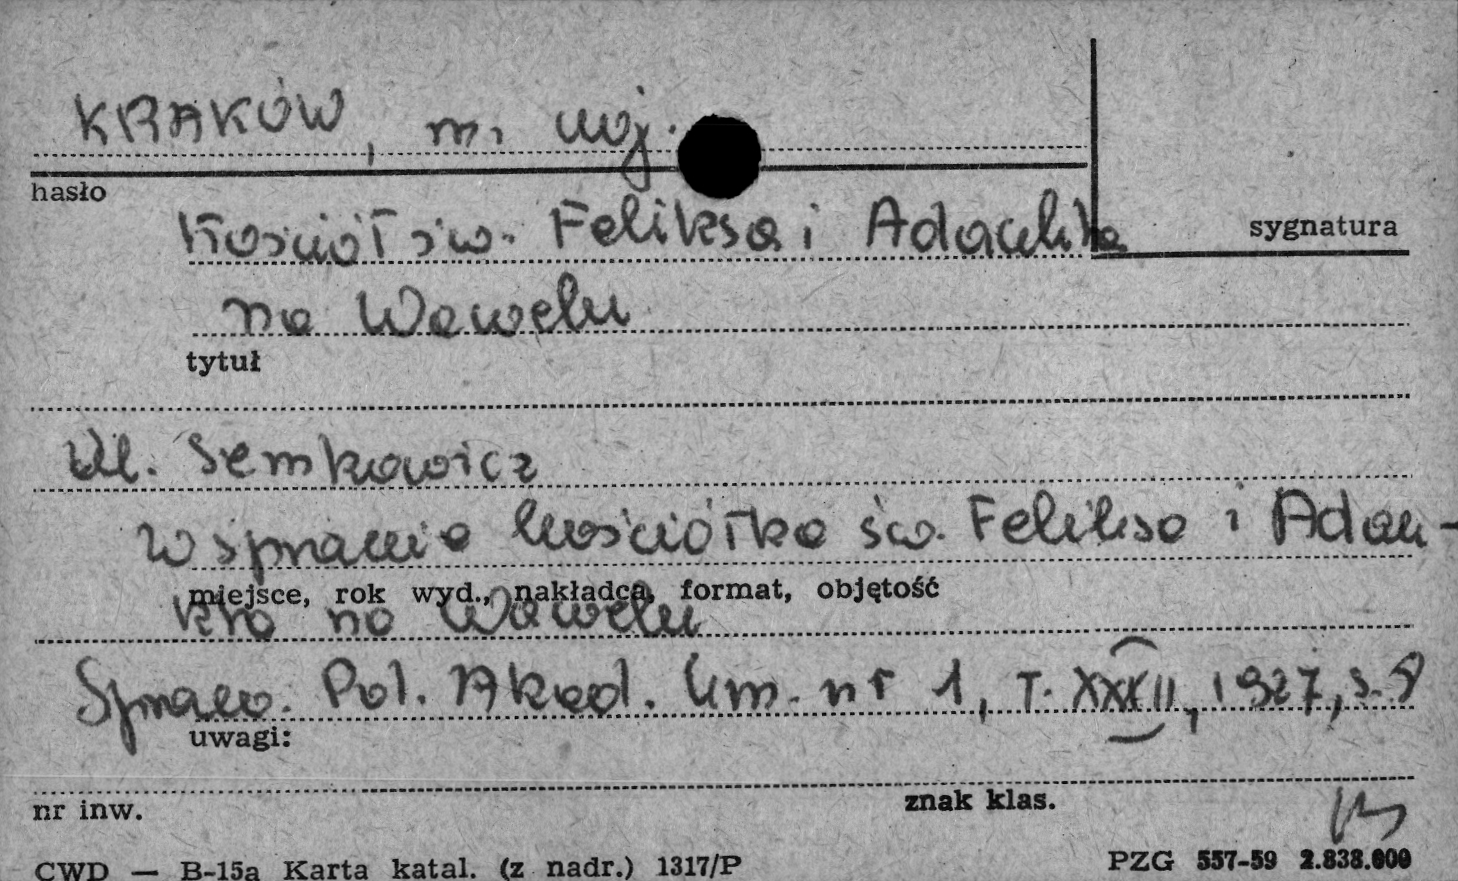 KRAKÓW, m. woj.
hasło
Kościół św. Feliksa i Adaukta
sygnatura
na Wawelu
tytuł
Wł. Semkowicz
W sprawie kościółka św. Feliksa i Adau-
miejsce, rok wyd., nakładca, format, objętość
kta na Wawelu
Spraw. Pol. Akad. Um. nr 1, T. XXXII, 1927, s. 8
uwagi:
nr inw.
znak klas.
CWD — B-15a Karta katal. (z nadr.) 1317/P
PZG 557-59 2.838.000